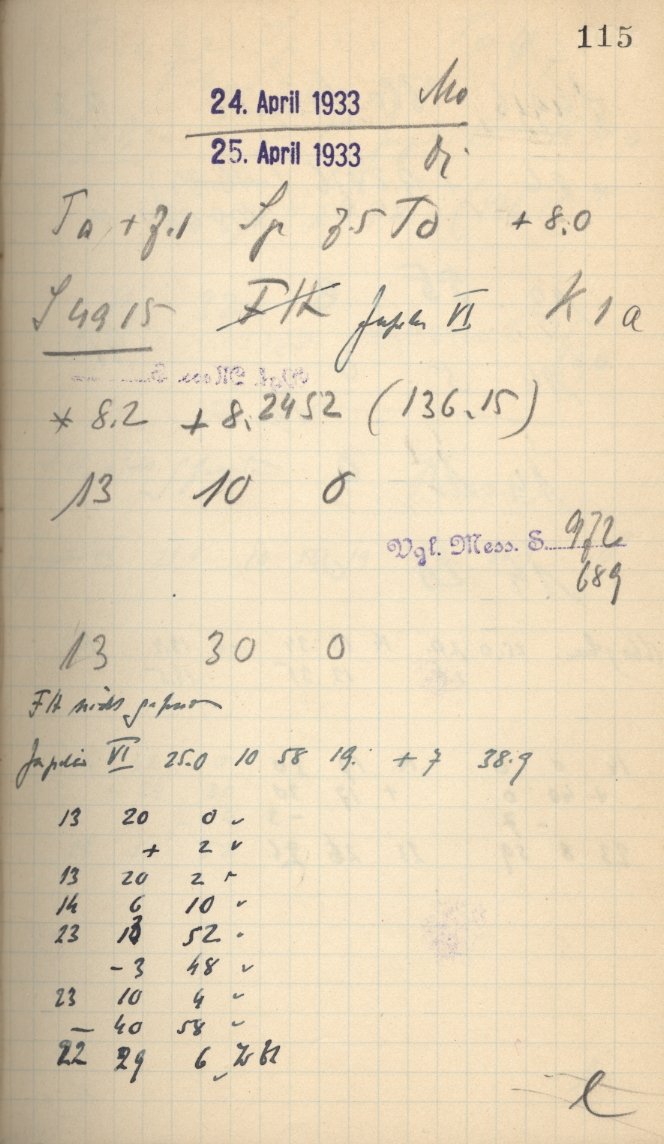 115
24. April 1933 Mo
25. April 1933 Di
Ta + 7.1 Sp 7.5 Td + 8.0
S 4915 FK Jupiter VI K 1 a
* 8.2 + 8.2452 (136.15)
13 10 0
Vgl. Mess. S. 972
689
13 30 0
FK nicht
Jupiter VI 25.0 10 58 19. + 7 38.9
13 20 0
+ 2
13 20 2
14 6 10
23 13 52
- 3 48
23 10 4
- 40 58
22 29 6